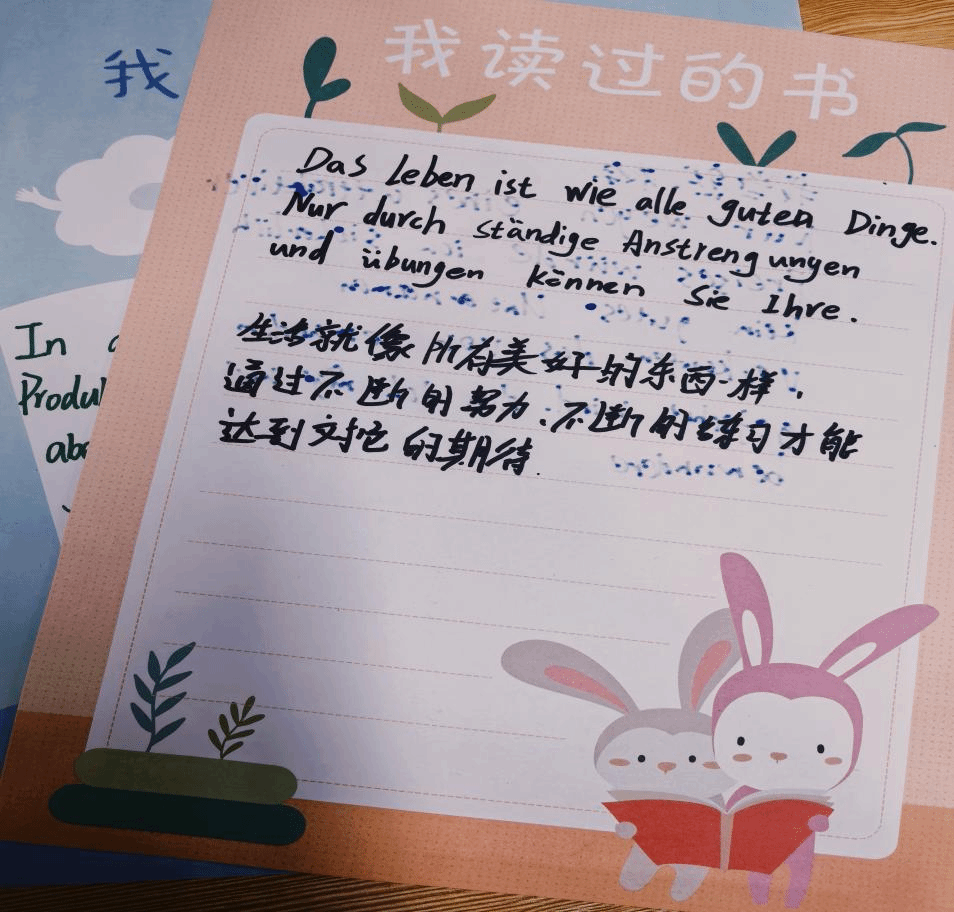 我读过的书
Das Leben ist wie alle guten Dinge.
Nur durch ständige Anstrengungen
und übungen können Sie Ihre.
生活就像所有美好的东西一样，
通过不断的努力、不断的练习才能
达到对它的期待.
我
In
Produ